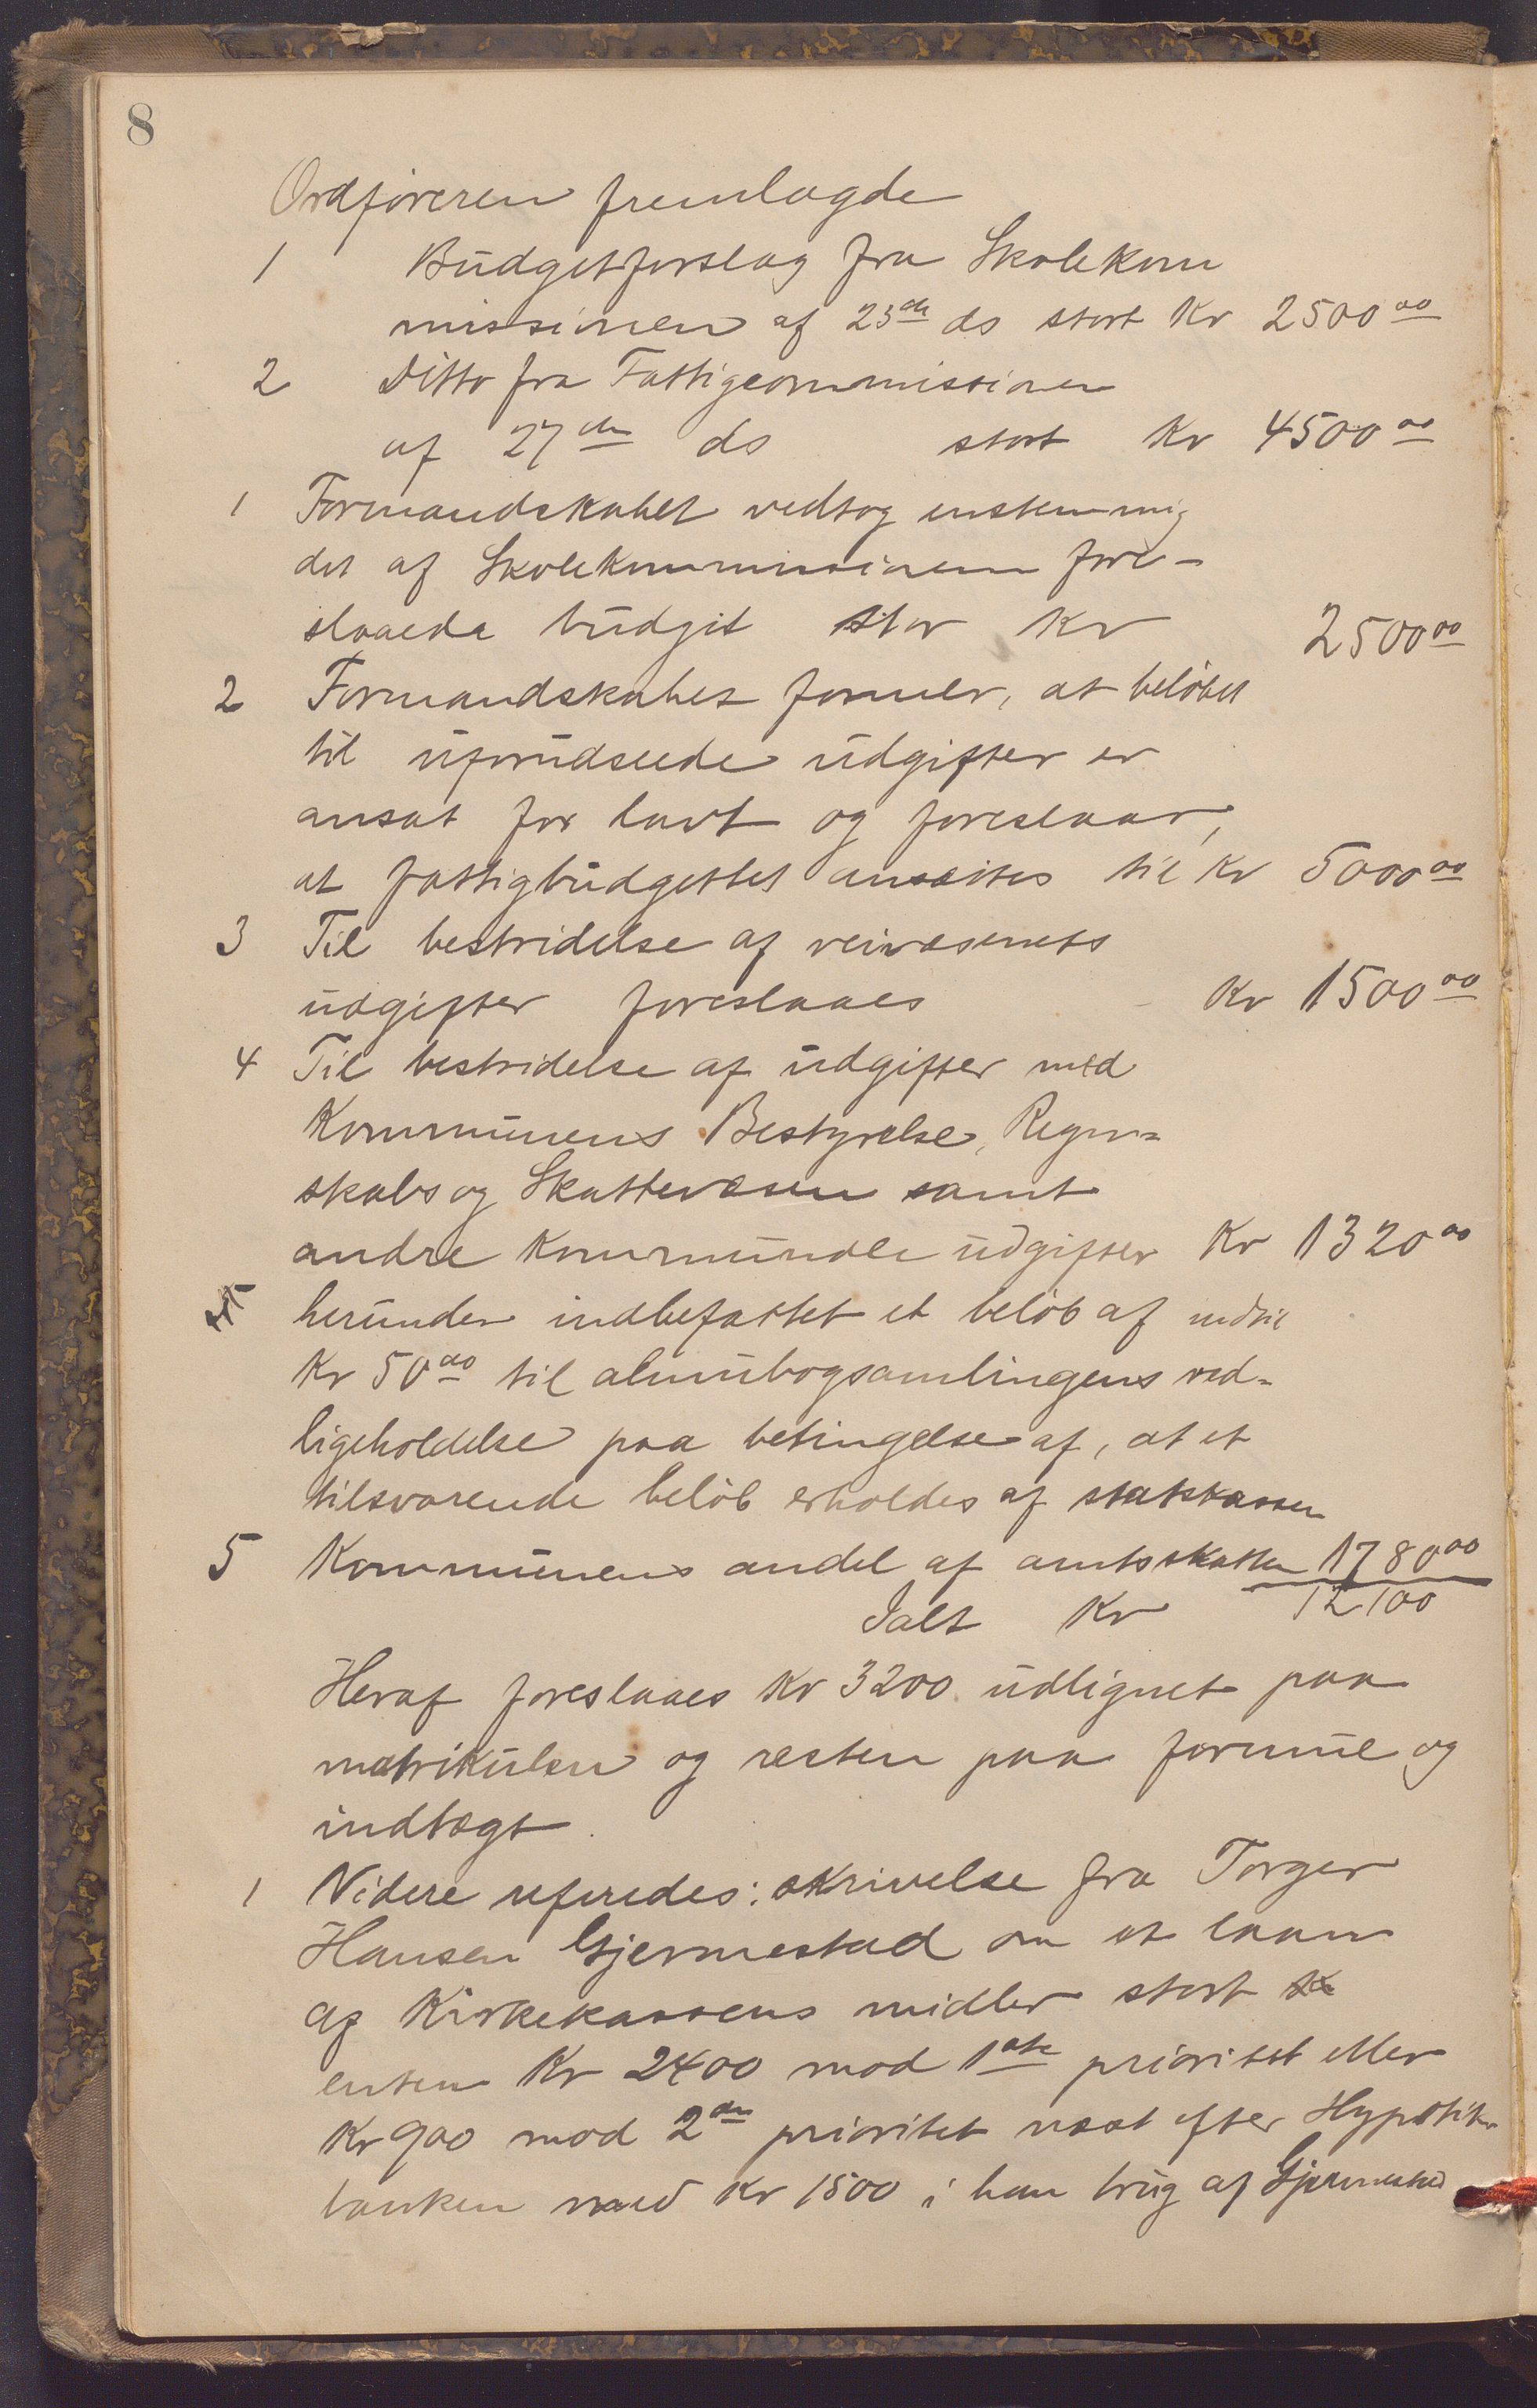 8
Ordføreren fremlagde
1 Budgetforslag fra Skolekom
missionen af 23de ds stort Kr 2500 00
2 Ditto fra Fattigcommissionen
af 27de ds stort Kr 4500 00
1 Formandskabet vedtog enstemmig
det af Skolekommissionen fore-
slaaede budget stor Kr 2500 00
2 Formandskabet formener, at beløbet
til uforudseede udgifter er
ansat for lavt og foreslaar,
at fattigbudgettet ansættes til Kr 5000 00
3 Til bestridelse af veivæsenets
udgifter foreslaaes Kr 1500 00
4 Til bestridelse af udgifter med
Kommunens Bestyrelse, Regn-
skabs og Skattevæsen samt
andre kommunale udgifter Kr 1320 00
herunder indbefattet et beløb af indtil
Kr 50 00 til almubogsamlingens ved-
ligeholdelse paa betingelse af, at et
tilsvarende beløb erholdes af statskassen
5 Kommunens andel af amtsskatten 1780 00
Ialt Kr 12100
Heraf foreslaaes Kr 3200 udlignet paa
matrikulen og resten paa formue og
indtægt.
1 Videre refereredes: skrivelse fra Torger
Hansen Gjermestad om et laan
af Kirkekassens midler stort
enten Kr 2400 mod 1ste prioritet eller
Kr 900 mod 2den prioritet næst efter Hypothek
banken med Kr 1500 i han brug af Gjermestad